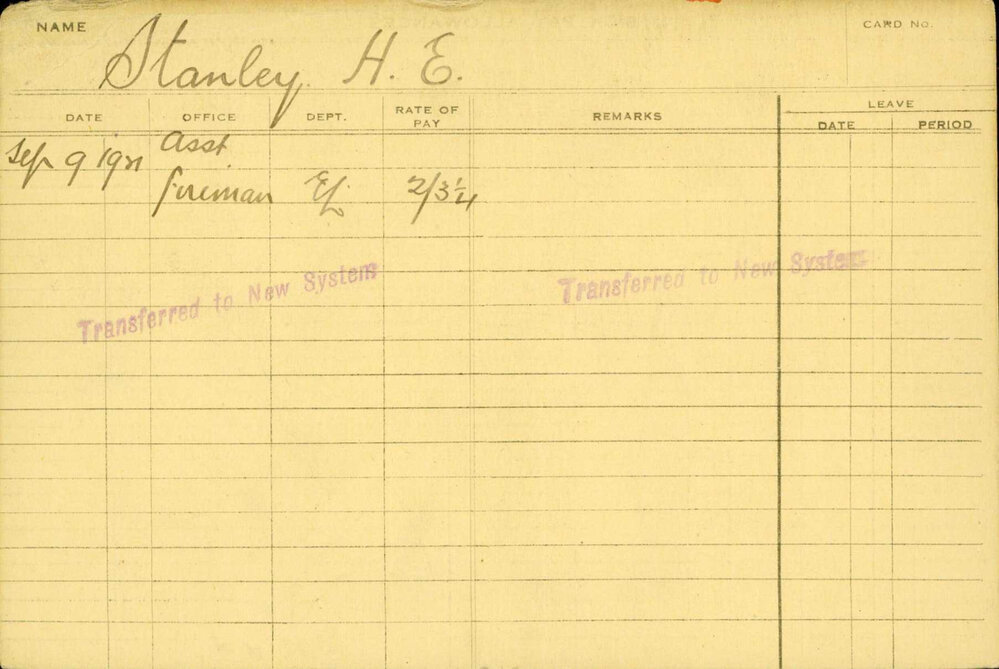 NAME
Stanley. H. E.
CARD NO.
DATE OFFICE DEPT. RATE OF PAY REMARKS LEAVE
DATE PERIOD
Sep 9 1921 Asst
Fireman EL 2/3¼
Transferred to New System
Transferred to New System